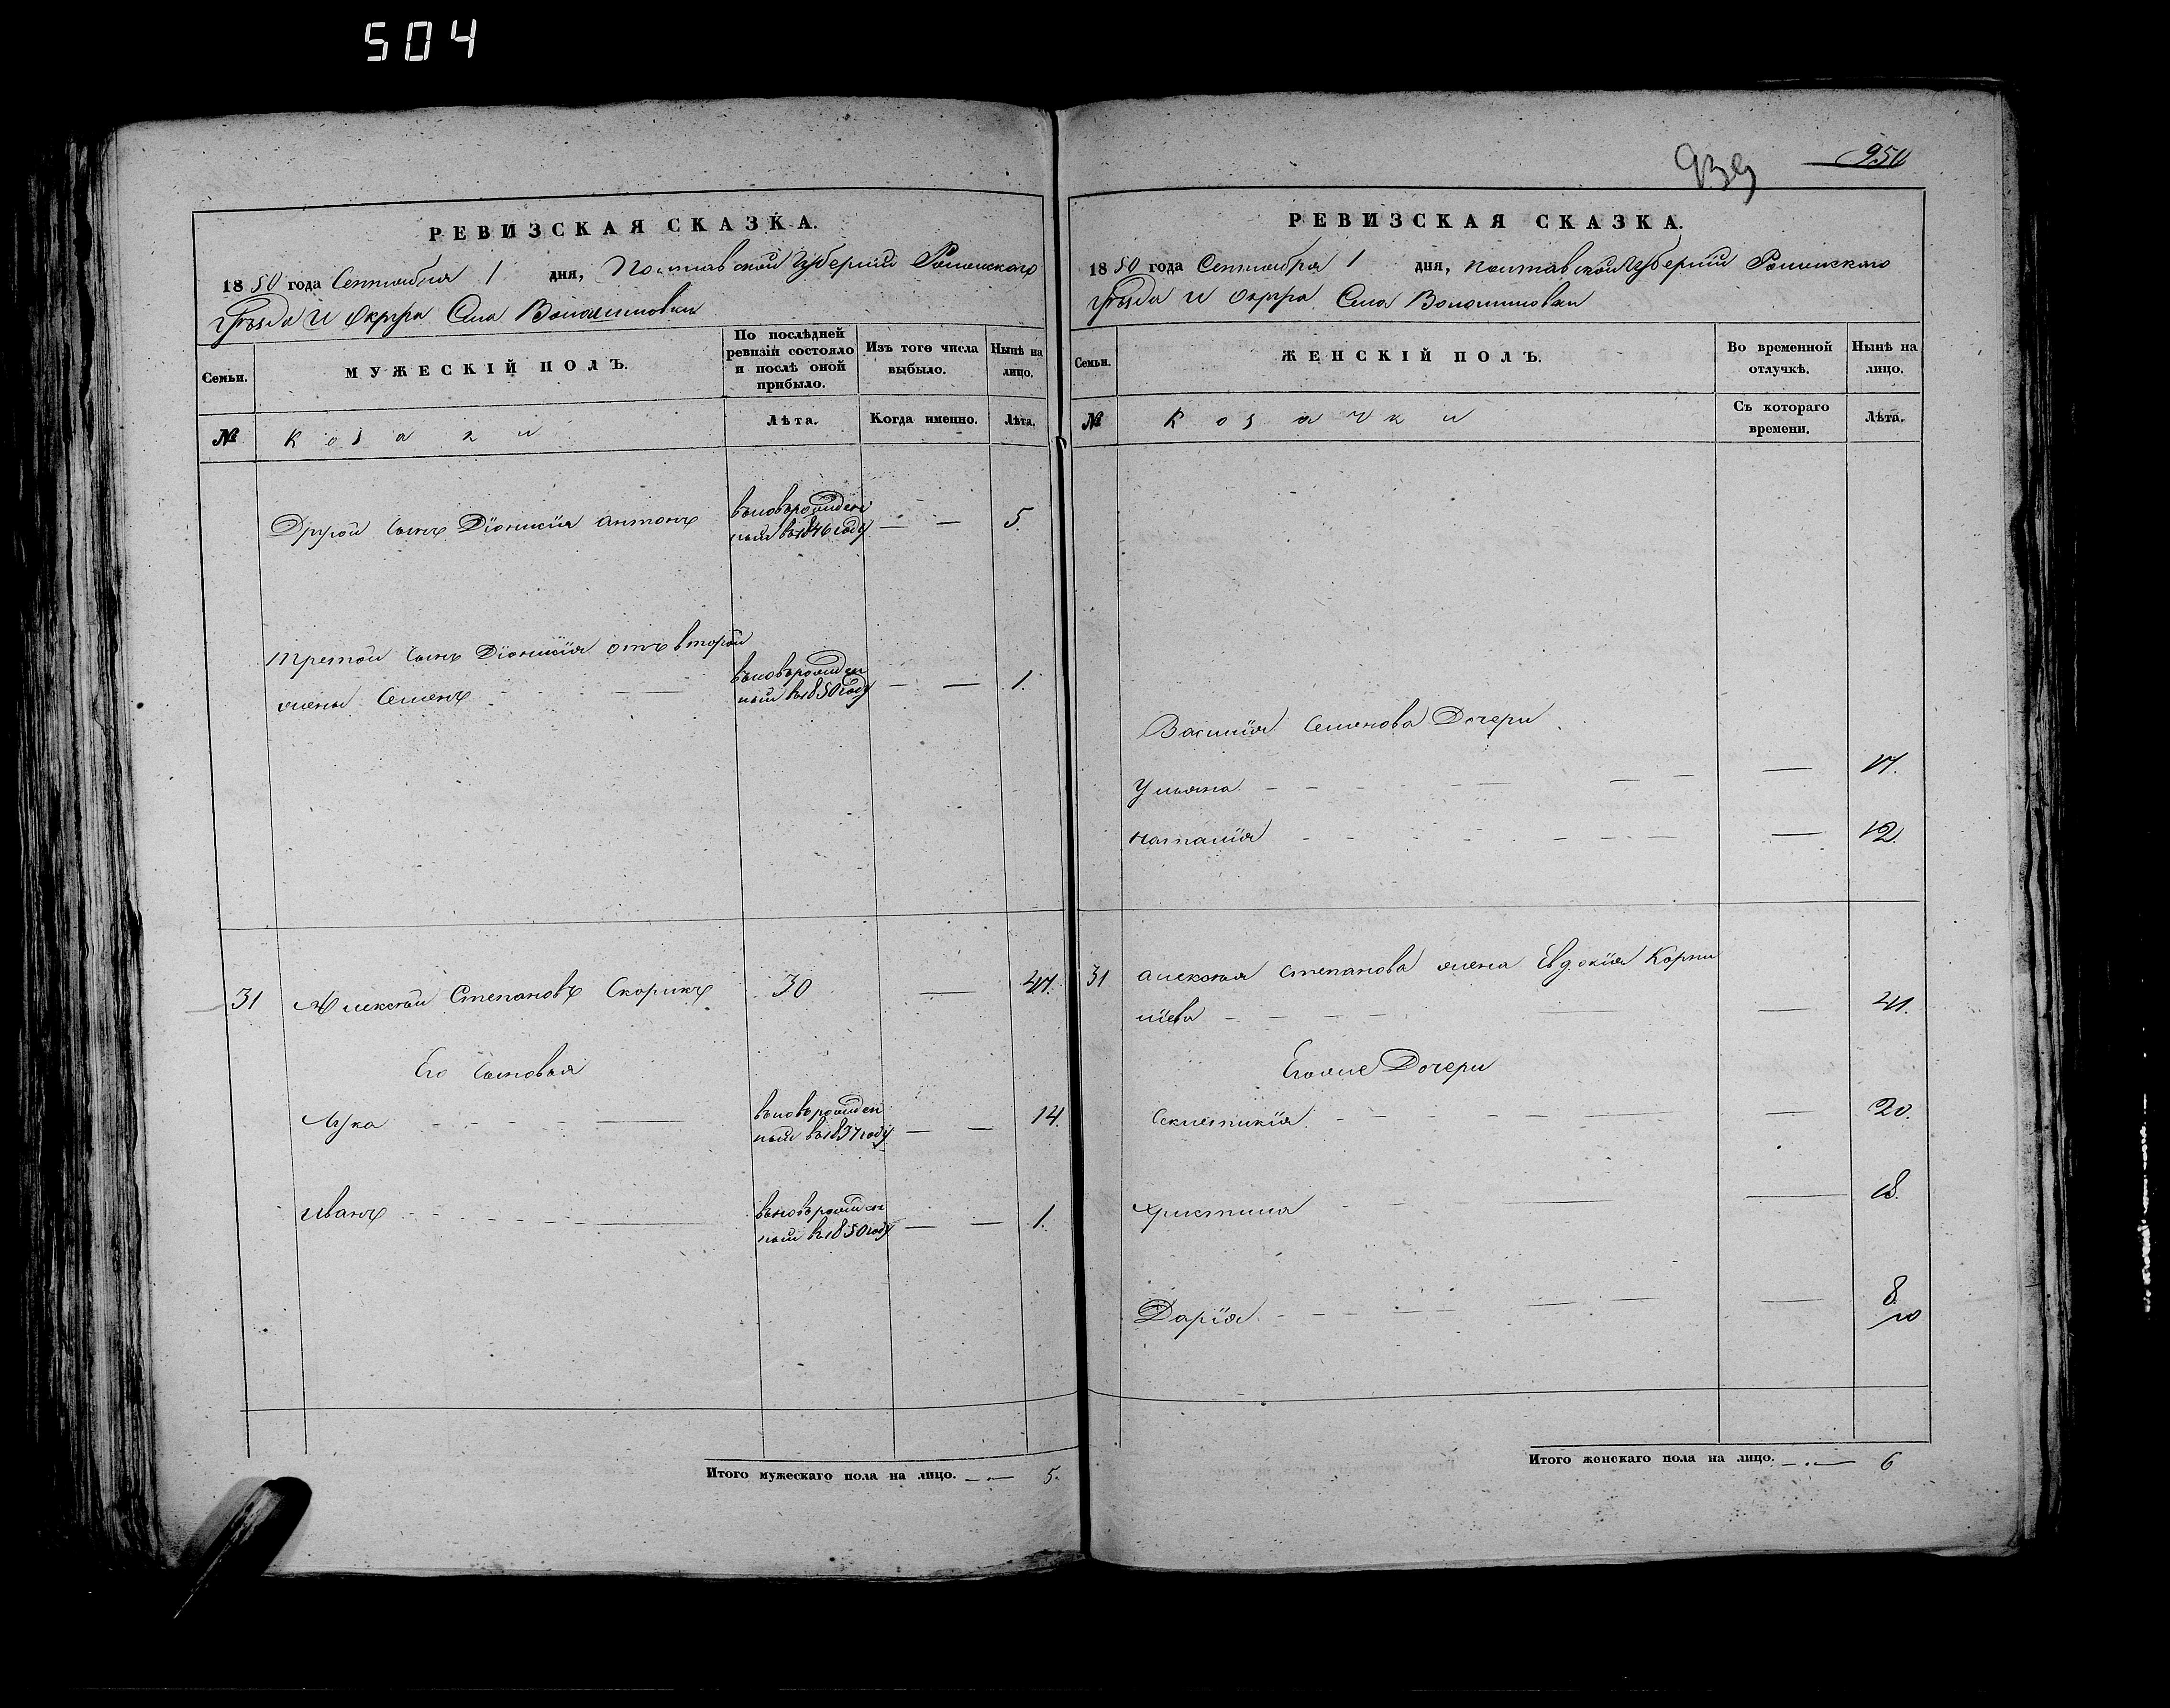 504
939
950
РЕВИЗСКАЯ СКАЗКА.
1850 года Сентября 1 дня, Полтавской Губернии Роменского
Уѣзда и Округа Села Волошиновки
Семьи.
МУЖЕСКІЙ ПОЛЪ.
По послѣдней
ревизіи состояло
и послѣ оной
прибыло.
Изъ того числа
выбыло.
Нынѣ на
лицо.
№
Козаки
Лѣта.
Когда именно.
Лѣта.
Другой сынъ Діонисія Антонъ
вновьрожден
ный въ 1846 году — — 5.
Третой сынъ Діонисія отъ второй
жены Семенъ — —
вновьрожден
ный въ 1850 году — — 1.
31 Алексѣй Степановъ Скорикъ 30 — 47.
Его Сыновья
Лука —
вновьрожден
ный въ 1837 году — — 14.
Иванъ —
вновьрожден
ный въ 1850 году — — 1.
Итого мужескаго пола на лицо. — — 5.
РЕВИЗСКАЯ СКАЗКА.
1850 года Сентября 1 дня, Полтавской Губерніи Роменскаго
Уѣзда и Округа Села Волошиновки
Семьи.
ЖЕНСКІЙ ПОЛЪ.
Во временной
отлучкѣ.
Нынѣ на
лицо.
№
Козачки
Съ котораго
времени.
Лѣта.
Василія Семенова Дочери
Ульяна — 17.
Наталія — 12.
31 Алексѣя Степанова жена Евдокія Корни
ліева —
Егоже Дочери
— 20.
Христина — 18.
Дарія — 8.
Итого женскаго пола на лицо. — — 6